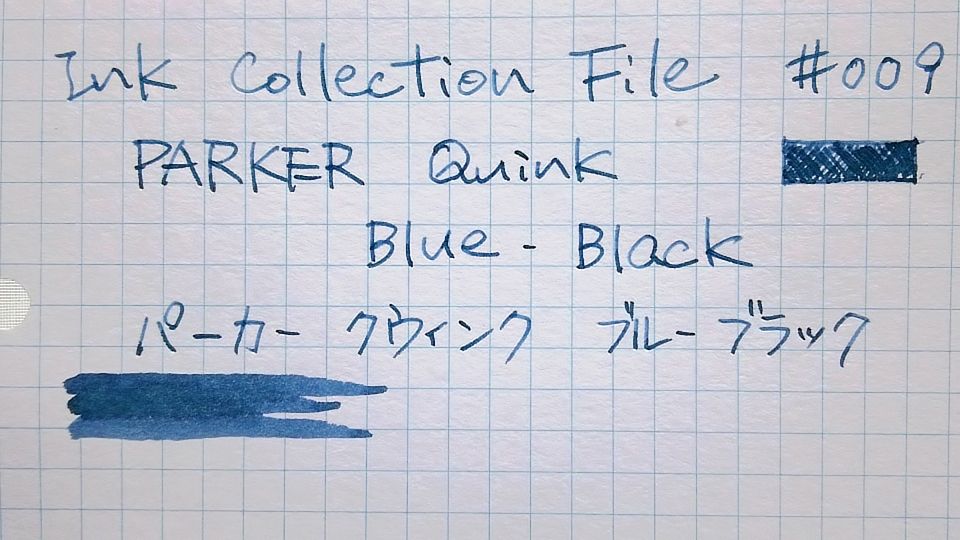 Ink Collection File #009
PARKER Quink
Blue - Black
パーカー クウィンク ブルーブラック